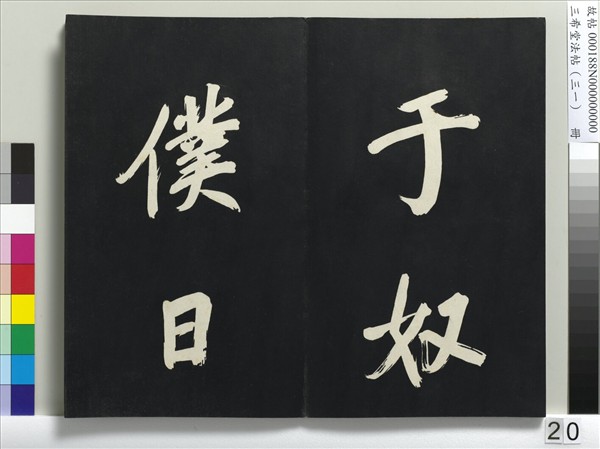 于奴
僕日
故帖 000188N000000000
三希堂法帖(三一) 冊
20